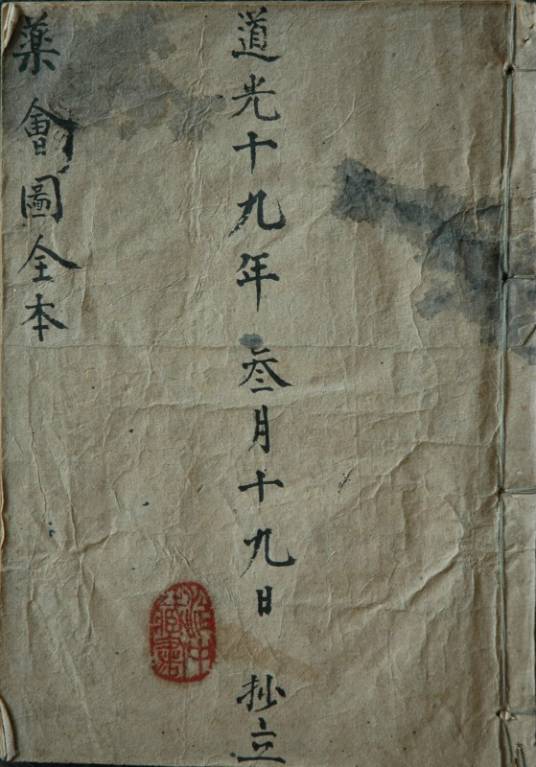 道光十九年叁月十九日 抄立
藥會圖全本